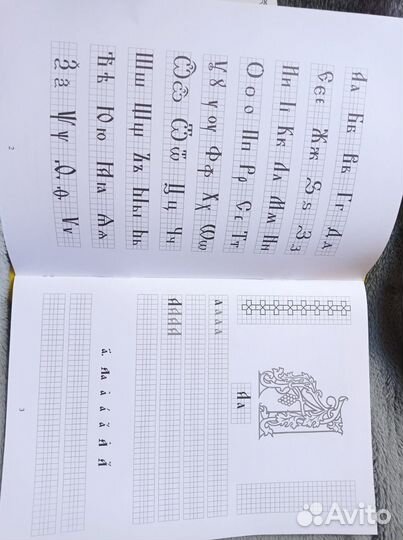 Аа Бб Вв Гг Дд
Єєе Жж Ѕѕ Зз
Ии Іі Кк Лл Мм Нн
Оо о Пп Рр Сс Тт
Ꙋꙋ у оу Фф Хх Ѡѡ
Ѽѽ Ѿѿ Цц Чч
Шш Щщ Ъъ Ыы Ьь
Ѣѣ Юю Ꙗꙗ Ѧѧ
Ѯѯ Ѱѱ Ѳѳ Ѵѵ
2
А
Аа
а а а а
А А А А
а҃. Аа
3
Avito